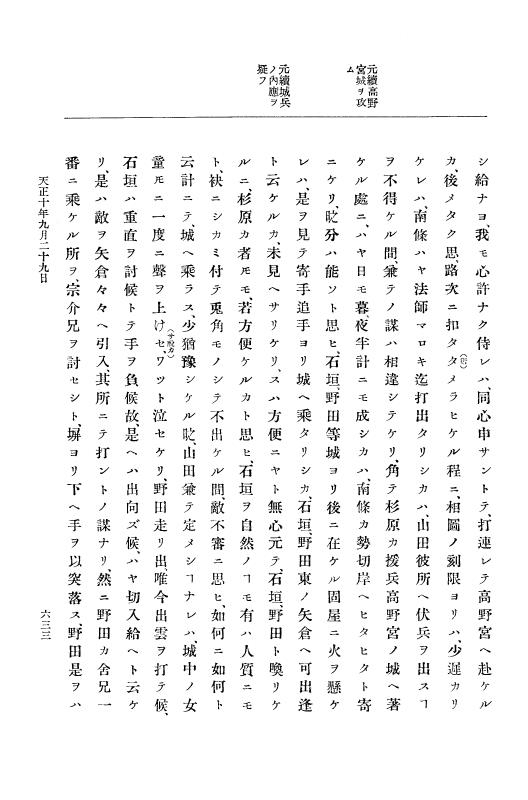 元續高野
宮城ヲ攻
ム
元續城兵
ノ內應ヲ
疑フ
シ給ナヨ我モ心許ナク侍レハ、同心申サントテ、打連レテ高野宮へ赴ケル
カ、後メタク思、路次ニ扣タタメラヒケル程ニ、相圖ノ刻限ヨリハ、少遲カリ
(衍)
ケレハ、南條ハヤ法師マロキ迄打出タリシカハ、山田彼所へ伏兵ヲ出スヿ
ヲ不得ケル間、兼テノ謀ハ相違シテケリ、角テ杉原カ援兵高野宮ノ城へ著
ケル處ニ、ハヤ日モ暮、夜半計ニモ成シカハ、南條カ勢切岸へヒタヒタト寄
ニケリ、昣分ハ能ソト思ヒ、石垣、野田等城ヨリ後ニ在ケル固屋ニ火ヲ懸ケ
レハ、是ヲ見テ寄手追手ヨリ城へ乘タリシカ、石垣、野田東ノ矢倉へ可出逢
ト云ケルカ、未見ヘサリケリ、スハ方便ニヤト無心元テ、石垣、野田ト喚リケ
ルニ、杉原カ者𪜈モ、若方便ケルカト思ヒ、石垣ヲ自然ノヿモ有ハ人質ニモ
ト、袂ニシカミ付テ兎角モノシテ不出ケル間、敵不審ニ思ヒ、如何ニ如何ト
云計ニテ城へ乘ラス、少猶豫シケル昣、山田兼テ定メシヿナレハ、城中ノ女
童𪜈ニ一度ニ聲ヲ上ケセ、ワツト泣セケリ、野田走リ出、唯今出雲ヲ打テ候、
(サ脫カ)
石垣ハ重直ヲ討候トテ手ヲ負候故、是ヘハ出向ズ候、ハヤ切入給ヘト云ケ
リ、是ハ敵ヲ矢倉々々へ引入、其所ニテ打ントノ謀ナリ、然ニ野田カ舍兄一
番ニ乘ケル所ヲ、宗介兄ヲ討セシト、塀ヨリ下へ手ヲ以突落ス、野田是ヲハ
天正十年九月二十九日
六三三